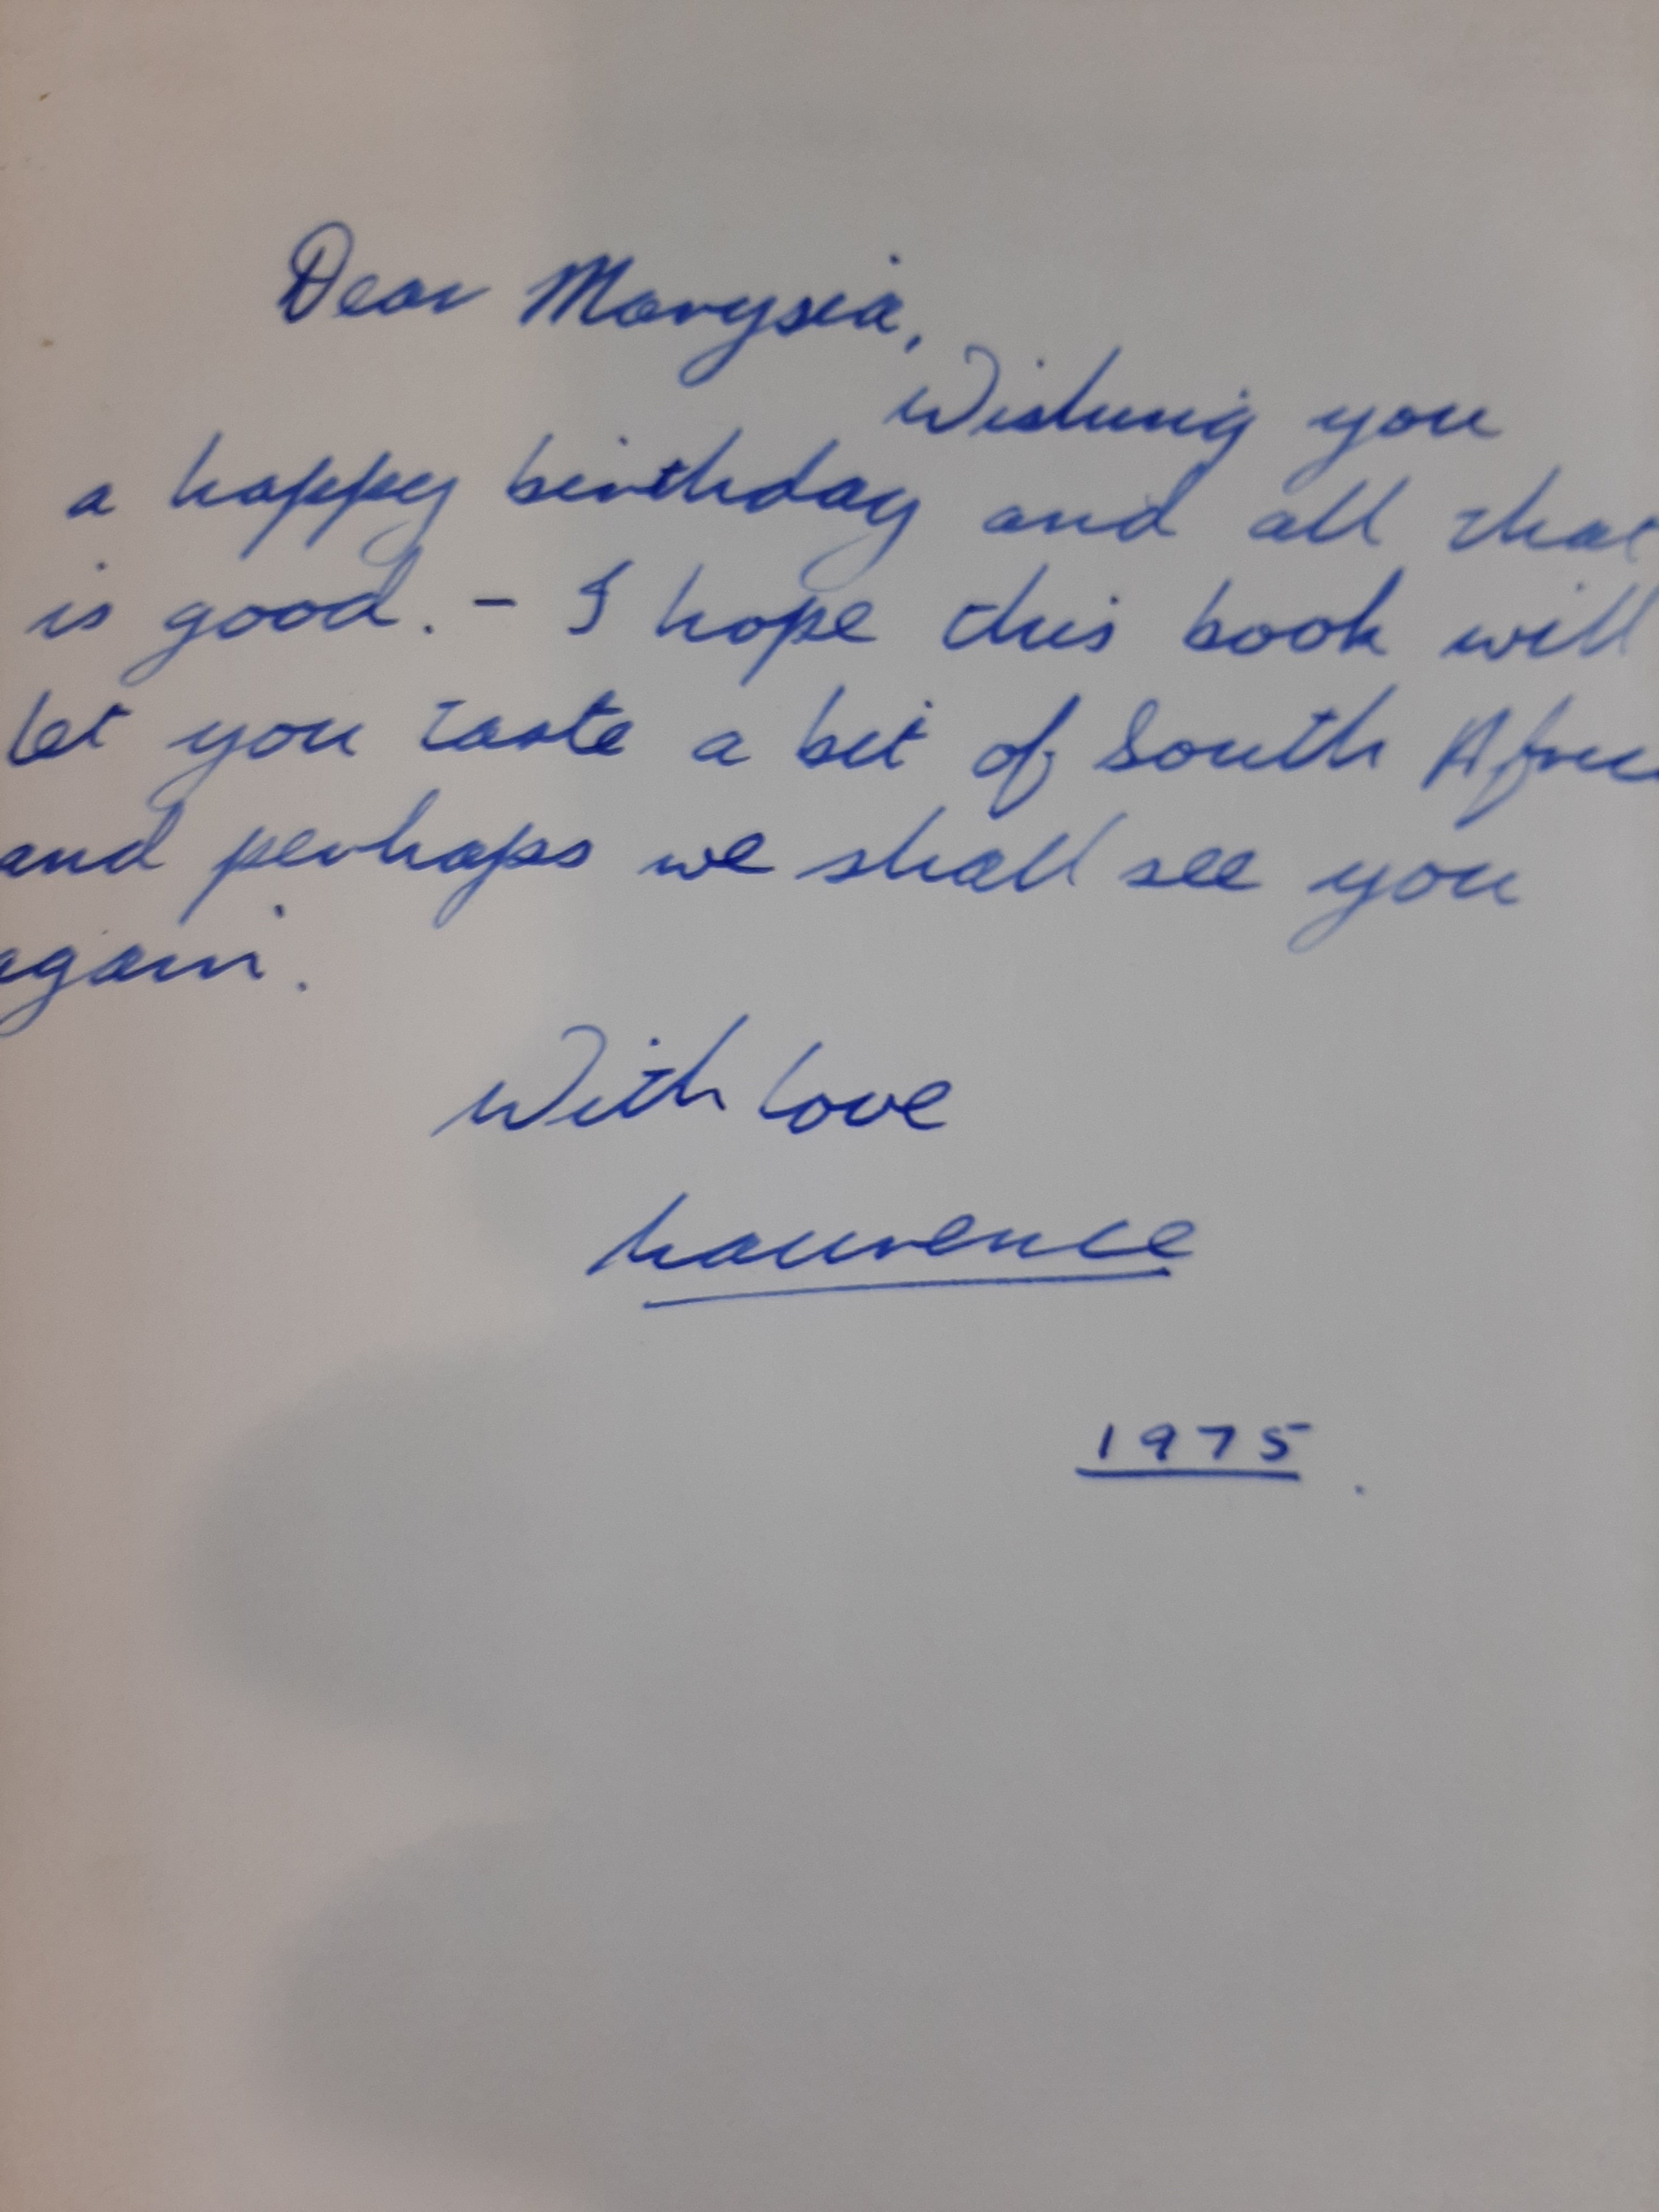 Dear Marysia,
Wishing you
a happy birthday and all that
is good. - I hope this book will
let you taste a bit of South Afric
and perhaps we shall see you
again.
With love
Laurence
1975.